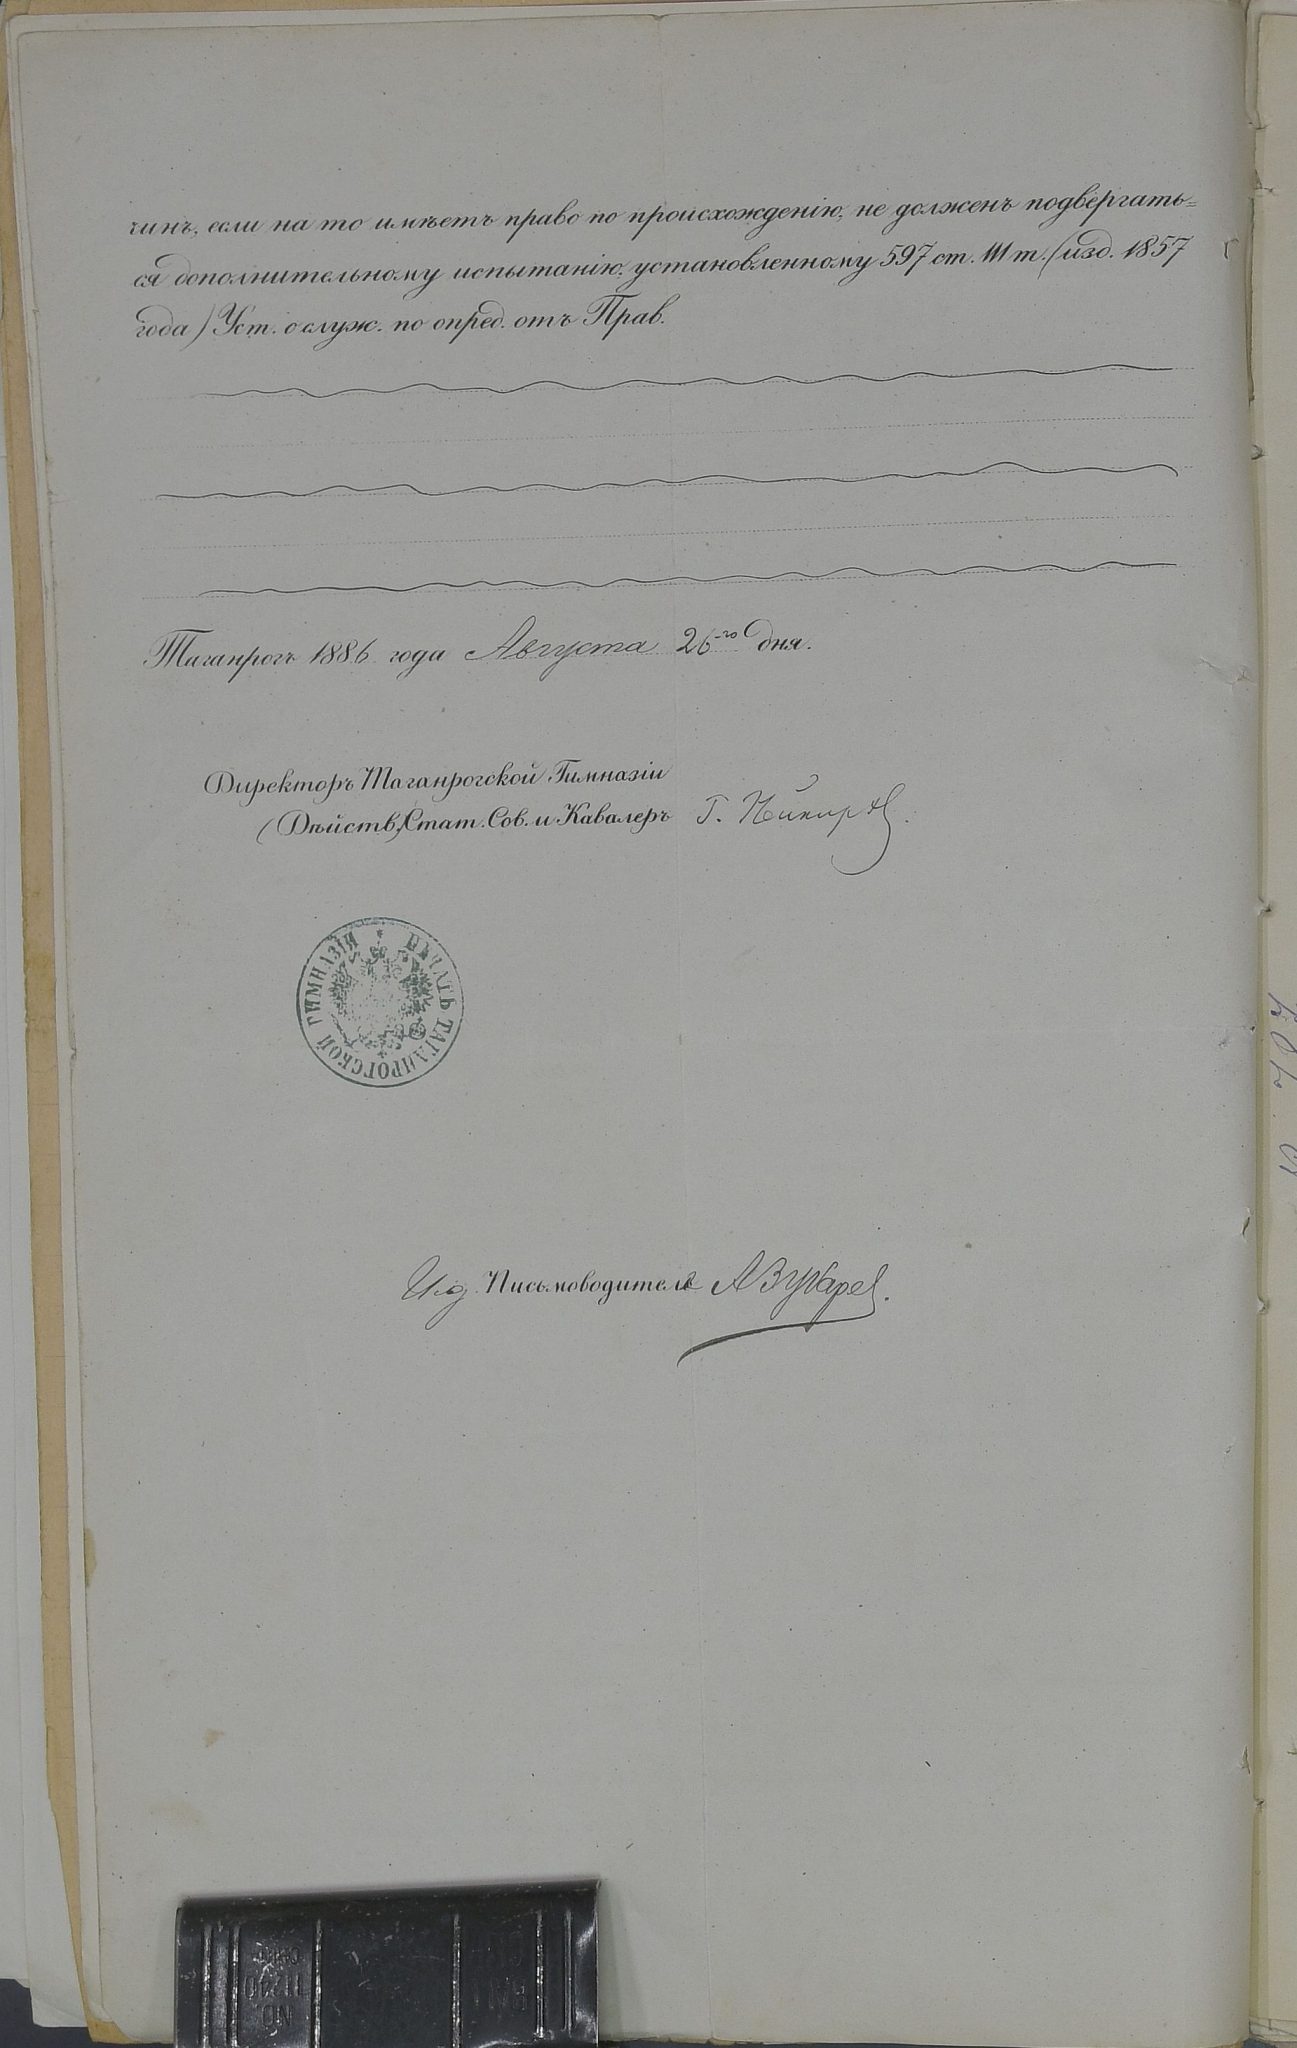 чинъ, если на то имѣетъ право по происхожденію, не долженъ подвергать=
ся дополнительному испытанію, установленному 597 ст. III т. (изд. 1857
года) Уст. о служ. по опред. отъ Прав.
Таганрогъ 1886 года Августа 26-го дня.
Директоръ Таганрогской Гимназіи
(Дѣйств.) Стат. Сов. и Кавалеръ Г.
ПЕЧАТЬ ТАГАНРОГСКОЙ ГИМНАЗІИ
И.д. Письмоводителя А Зубарев.